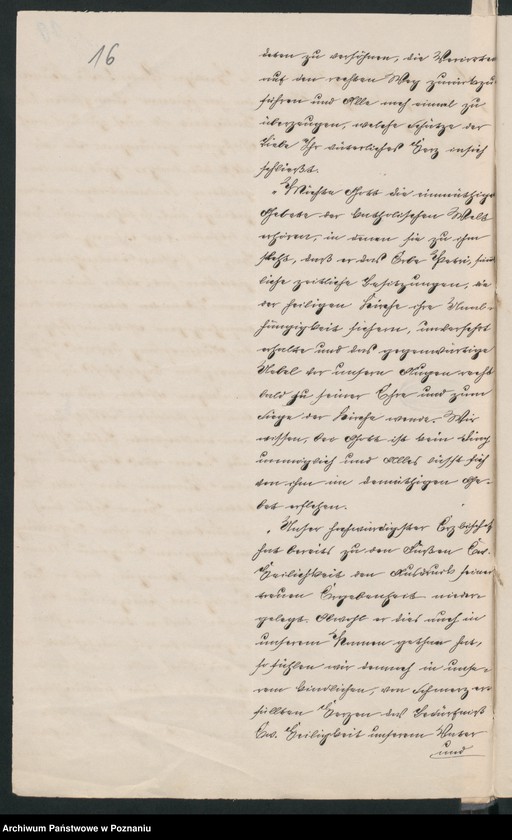 16
deten zu versöhnen, die Verirrten
auf den rechten Weg zurückzu
führen und Alle noch einmal zu
überzeugen, welche Schätze der
Liebe Ihr väterliches Herz in sich
schließt.
„Möchte Gott die einmüthigen
Gebete der katholischen Welt
erhören, in denen sie zu ihm
fleht, daß er das Erbe Petri,
liche zeitliche Besitzungen, die
der heiligen Kirche ihre Unab-
hängigkeit sichern, unversehrt
erhalte und das gegenwärtige
Uebel vor unsern Augen recht
bald zu seiner Ehre und zum
Siege der Kirche wende. Wir
wissen, bei Gott ist kein Ding
unmöglich und Alles läßt sich
von ihm im demüthigen Ge-
bet erflehen.
„Unser hochwürdigster Erzbischof
hat bereits zu den Füßen Ew.
Heiligkeit den Ausdruck seiner
treuen Ergebenheit nieder-
gelegt. Obwohl er dies auch in
unserem Namen gethan hat,
so fühlen wir dennoch in unse-
rem kindlichen, von Schmerz er-
füllten Herzen das Bedürfniß
Ew. Heiligkeit unserem Vater
und
Archiwum Państwowe w Poznaniu